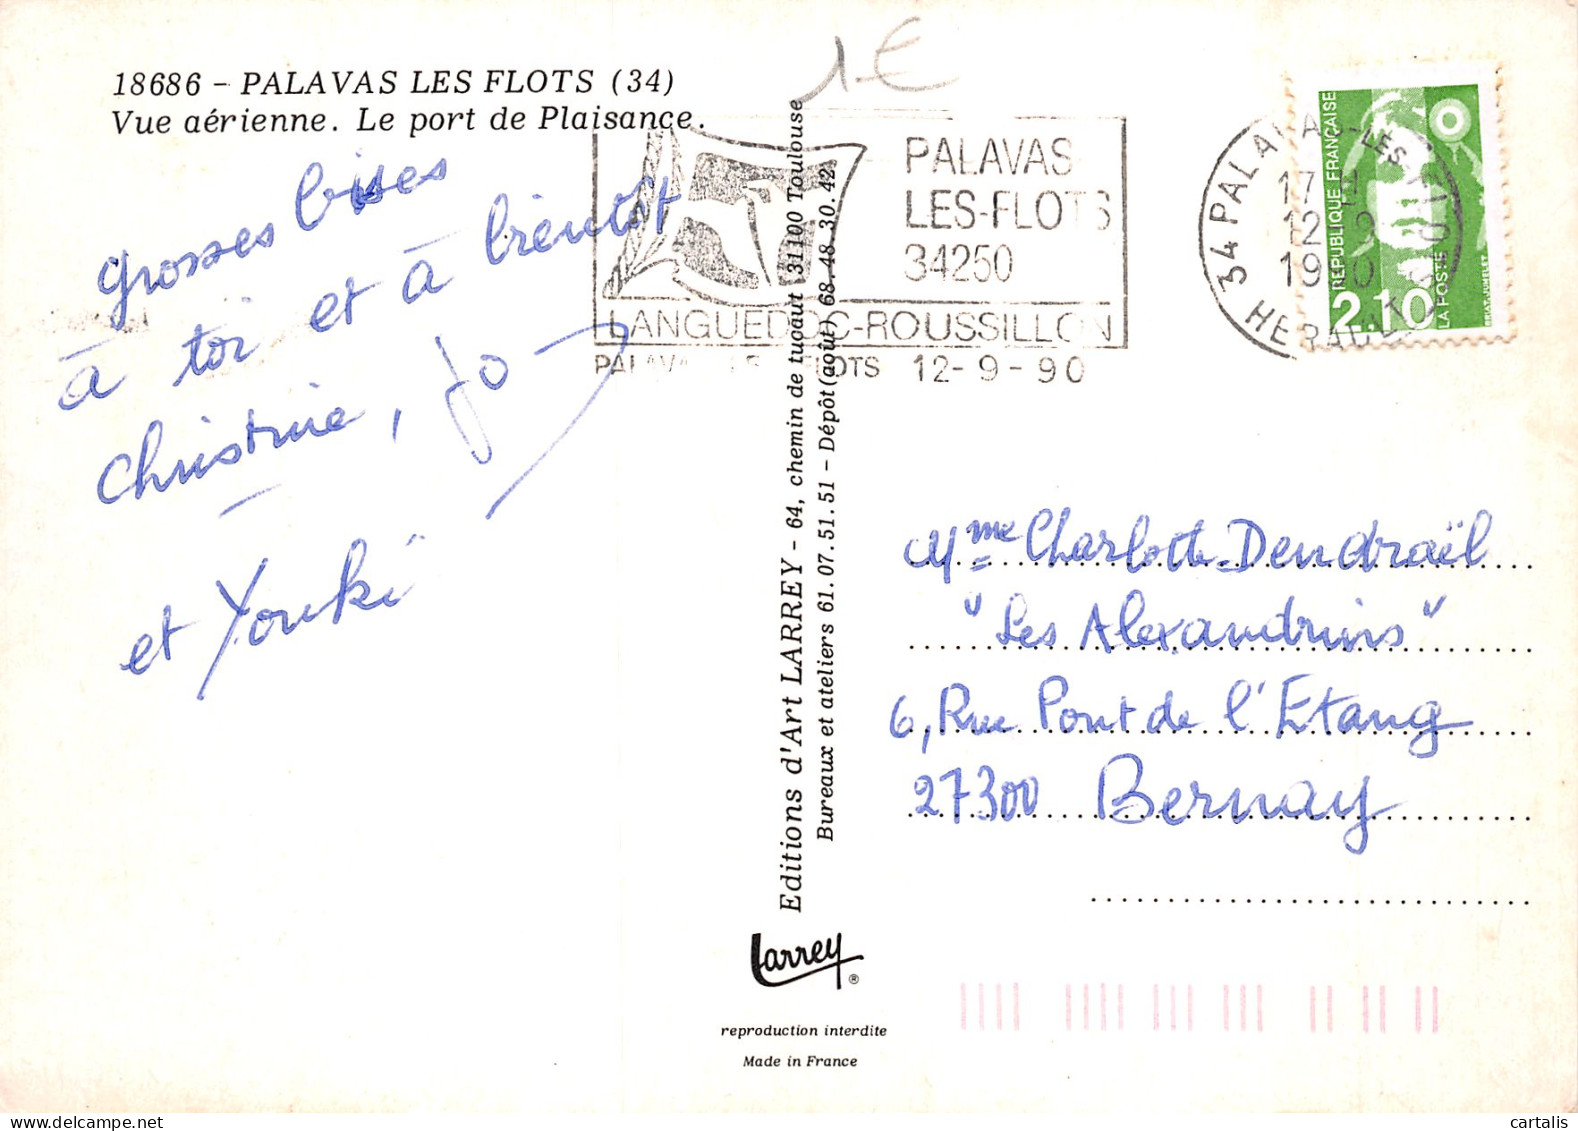 1 €
18686 - PALAVAS LES FLOTS (34)
Vue aérienne. Le port de Plaisance.
grosses bises
à toi et à bientôt
Christine, Jo
et Youki
Editions d'Art LARREY - 64, chemin de tucaut 31100 Toulouse
Bureaux et ateliers 61.07.51.51 - Dépôt (août) 68.48.30.42
Larrey ®
reproduction interdite
Made in France
PALAVAS
LES-FLOTS
34250
LANGUEDOC-ROUSSILLON
PALAVAS LES FLOTS 12-9-90
34 PALAVAS-LES-FLOTS
17 H
12-9
1990
HERAULT
RÉPUBLIQUE FRANÇAISE
2,10
LA POSTE
Mme Charlotte Dendraël
"Les Alexandrins"
6, Rue Pont de l'Etang
27300 Bernay
cartalis